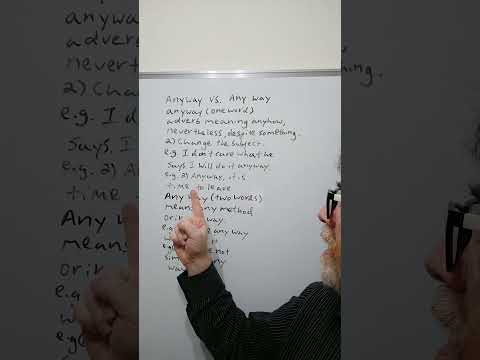 Anyway vs. Any way
anyway (one word)
adverb meaning anyhow,
nevertheless, despite something.
2) Change the subject.
e.g. I don't care what he
says. I will do it anyway.
e.g. 2) Anyway, it is
time to leave
Any way (two words)
means any method
or in way.
e.g. any way
e.g. not
any